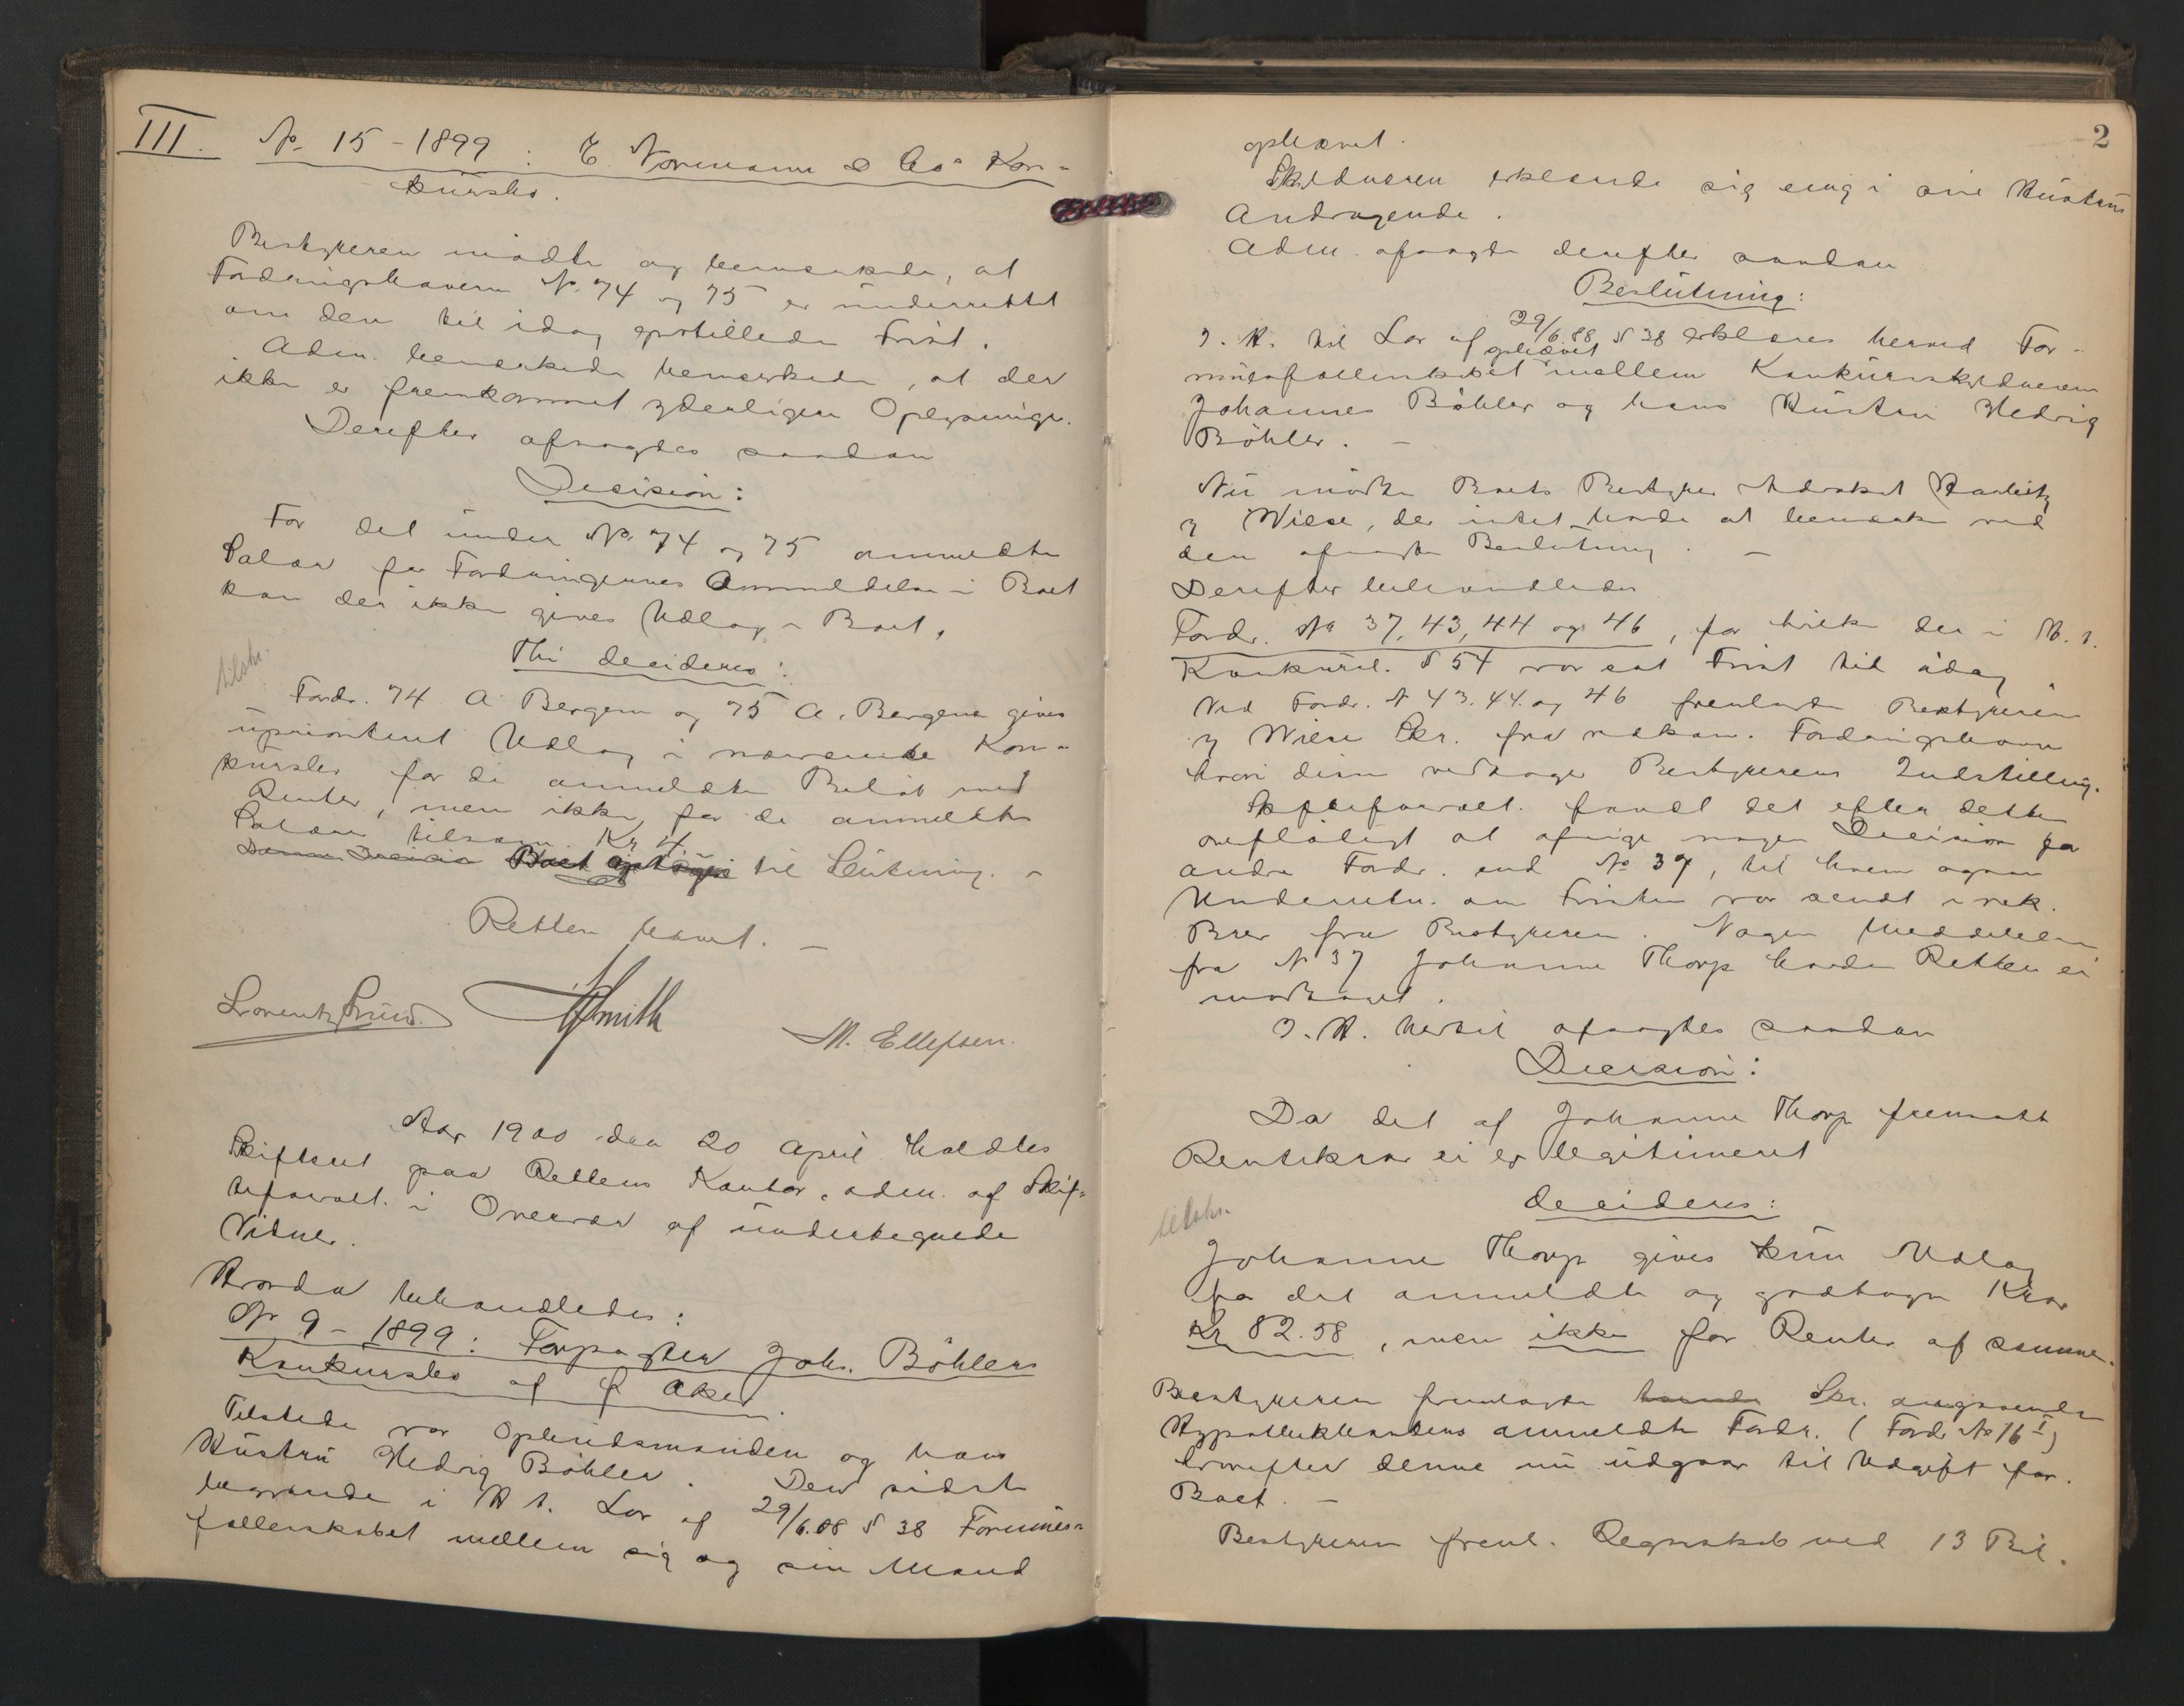 III. No 15 - 1899: E. Normann & Co's Kon-
kursbo.
Bestyreren mødte og bemærkede, at
Fordringshaverne No 74 og 75 er underrettet
om den til idag opstillede Frist.
Adm. bemærkede bemærkede, at der
ikke er fremkommet yderligere Oplysninger.
Derefter afsagdes saadan
Decision:
For det under No 74 og 75 anmeldte
Salær for Fordringernes Anmeldelse i Boet
kan der ikke gives Udlæg i Boet,
Thi decideres:
tilstr.
Fordr. 74 A Bergene og 75 A. Bergene gives
uprioriteret Udlæg i nærværende Kon-
kursbo for de anmeldte Beløb med
Renter, men ikke for de anmeldte
Salærer tilsam. Kr 4.
Denne Decision Boet optages til Slutning. -
Retten hævet. -
Lorentz Smith M. Ellefsen.
Aar 1900 den 20 April holdtes
Skifteret paa Rettens Kontor, adm. af Skif-
teforvalt. i Overvær af undertegnede
Vidner.
Hvorda behandledes:
No 9 - 1899: Forpagter Joh. Böhlers
Konkursbo af Aker.
Tilstede var Opbudsmanden og hans
Hustru Hedvig Böhler. Den sidste
begjærede i H. t. Lov af 29/6.88 § 38 Formues-
fællesskabet mellem sig og sin Mand
2
ophævet.
Skyldneren erklærede sig enig i sin Hustrus
Andragende.
Adm. afsagde derefter saadan
Beslutning:
I. H. til Lov af 29/6 88 § 38 erklæres herved For-
ophævet
muesfællesskabet mellem Konkursskyldneren
Johannes Böhler og hans Hustru Hedvig
Böhler. -
Nu mødte Boets Bestyrer Advokat Harbitz
Wiese, der intet havde at bemærke ved
den afsagte Beslutning. -
Derefter behandledes
Fordr. No 37, 43, 44 og 46, for hvilke der i H. t.
Konkursl. § 54 var sat Frist til idag.
Ved Fordr. No 43. 44. og 46 fremlagde Bestyreren
Wiese Skr. fra vedkom. Fordringshavere
hvori disse vedtager Bestyrerens Indstilling.
Skifteforvalt. fandt det efter dette
overflødigt at afsige nogen Decision for
andre Fordr. end No 37, til hvem ogsaa
Underretn. om Fristen var sendt i rek.
Brev fra Bestyreren. Nogen Meddelelse
fra No 37 Johanne Thorp havde Retten ei
modtaget.
I. H. hertil afsagdes saadan
Decision:
Da det af Johanne Thorp fremsatte
Rentekrav ei er legitimeret
decideres:
tilstr.
Johanne Thorp gives kun Udlæg
for det anmeldte og godtagne Krav
Kr 82.58, men ikke for Renter af samme.
Bestyreren fremlagde Skr. angaaende
Hypothekbankens anmeldte Fordr. (Fordr. No 16 I)
hvorefter denne nu udgaar til Udgift for
Boet. -
Bestyreren freml. Regnskab med 13 Bil.